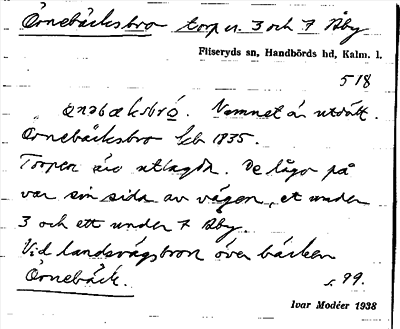 Örnebäcksbro torp u. 3 och 7 Åby
Fliseryds sn, Handbörds hd, Kalm. l.
518
Namnet är utdött.
Örnebäcksbro hfb 1835.
Torpen äro utlagda. De lågo på
var sin sida av vägen, et under
3 och ett under 7 Åby.
Vid landsvägsbron över bäcken
Örnebäck. s. 99.
Ivar Modéer 1938